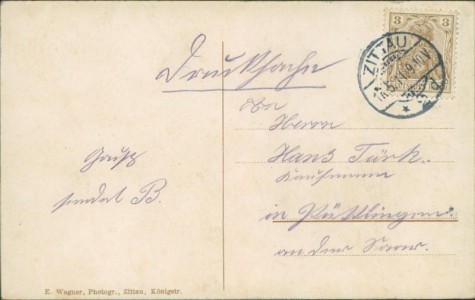 3 3
ZITTAU
Drucksache
Herrn
Hans Türk.
Kaufmann
in Püttlingen
an der Saar.
Gruß
sendet B.
E. Wagner, Photogr., Zittau, Königstr.